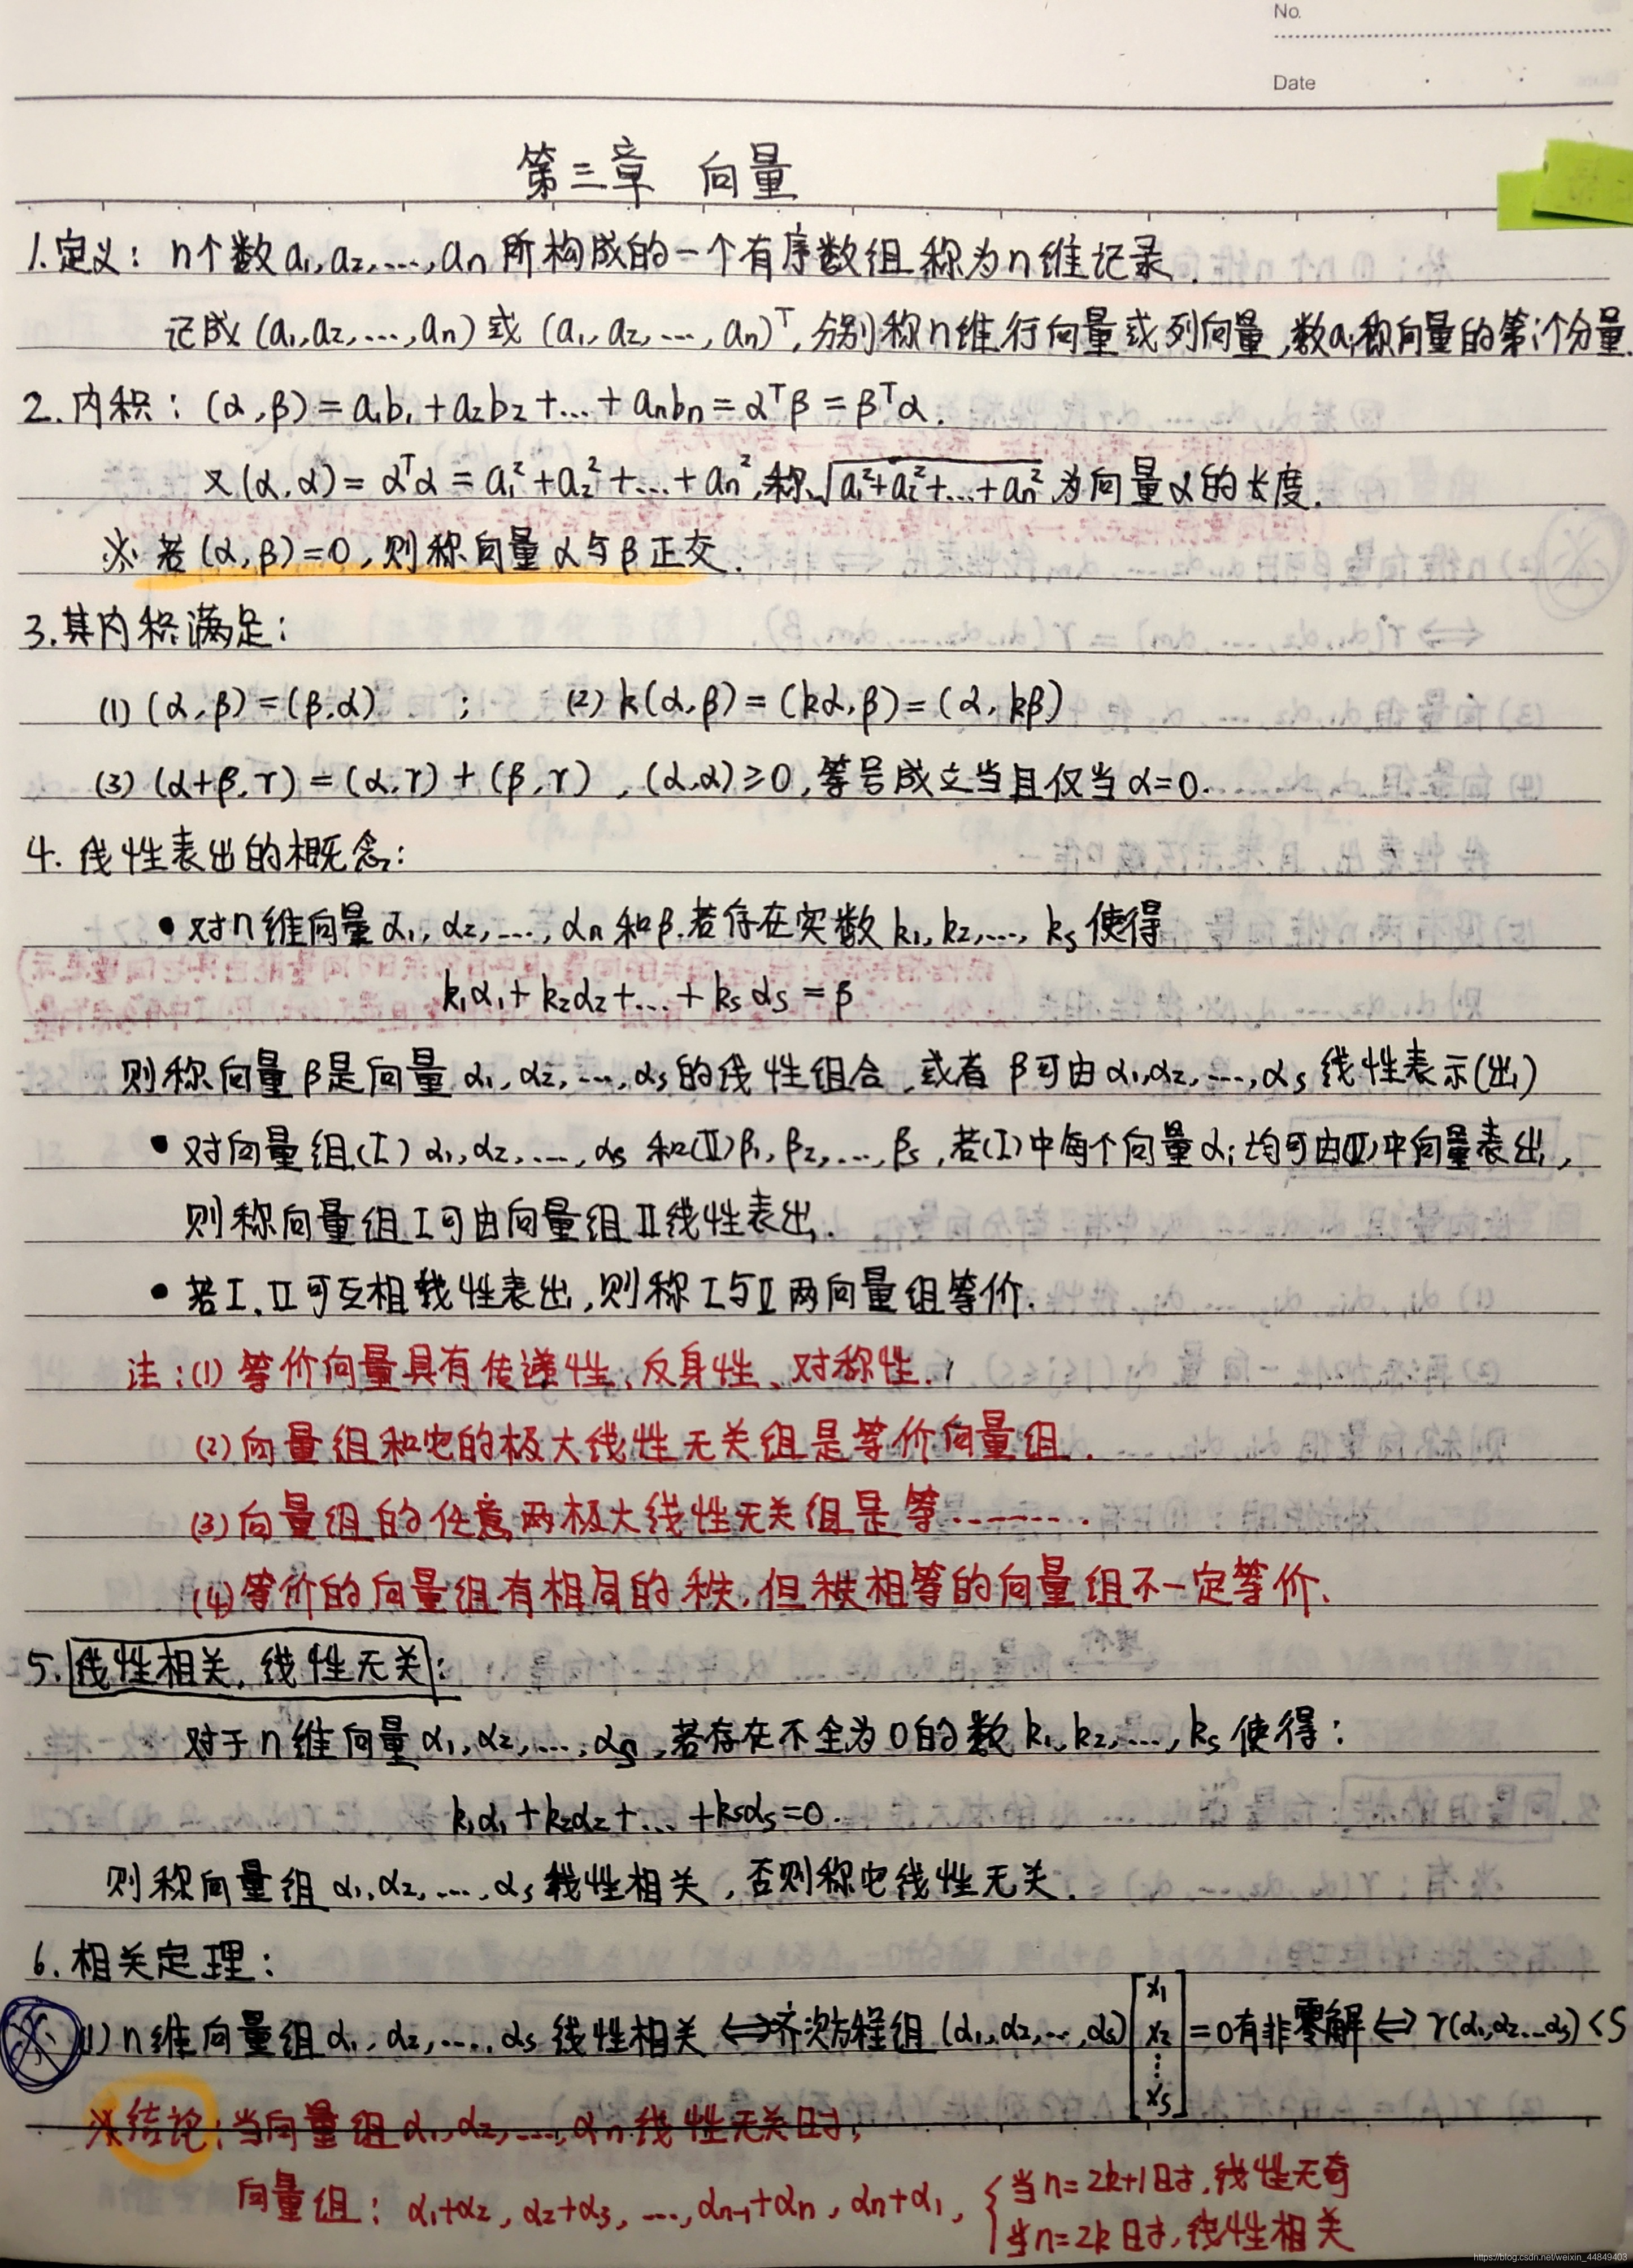 No.
Date
第三章 向量
1.定义: n个数a₁,a₂,...,aₙ所构成的一个有序数组称为n维记录.
记成(a₁,a₂,...,aₙ)或(a₁,a₂,...,aₙ)ᵀ,分别称n维行向量或列向量,数aᵢ称向量的第i个分量.
2.内积: (α,β)=a₁b₁+a₂b₂+...+aₙbₙ=αᵀβ=βᵀα.
又(α,α)=αᵀα=a₁²+a₂²+...+aₙ²,称√(a₁²+a₂²+...+aₙ²)为向量α的长度.
※若(α,β)=0,则称向量α与β正交.
3.其内积满足:
(1)(α,β)=(β,α) ; (2)k(α,β)=(kα,β)=(α,kβ)
(3)(α+β,γ)=(α,γ)+(β,γ),(α,α)≥0,等号成立当且仅当α=0.
4.线性表出的概念:
•对n维向量α₁,α₂,...,αₙ和β.若存在实数k₁,k₂,...,kₛ使得
k₁α₁+k₂α₂+...+kₛαₛ=β
则称向量β是向量α₁,α₂,...,αₛ的线性组合,或者β可由α₁,α₂,...,αₛ线性表示(出)
•对向量组(I)α₁,α₂,...,αₛ和(II)β₁,β₂,...,βₛ,若(I)中每个向量αᵢ均可由(II)中向量表出,
则称向量组I可由向量组II线性表出.
•若I、II可互相线性表出,则称I与II两向量组等价.
注:(1)等价向量具有传递性、反身性、对称性.
(2)向量组和它的极大线性无关组是等价向量组.
(3)向量组的任意两极大线性无关组是等.........
(4)等价的向量组有相同的秩,但秩相等的向量组不一定等价.
5.线性相关、线性无关:
对于n维向量α₁,α₂,...,αₛ,若存在不全为0的数k₁,k₂,...,kₛ使得:
k₁α₁+k₂α₂+...+kₛαₛ=0.
则称向量组α₁,α₂,...,αₛ线性相关,否则称它线性无关.
6.相关定理:
※(1)n维向量组α₁,α₂,...,αₛ线性相关⇔齐次方程组(α₁,α₂,...,αₛ)[x₁ x₂ ⋮ xₛ]=0有非零解⇔r(α₁,α₂...αₛ)<S
※结论:当向量组α₁,α₂,...,αₙ线性无关时,
向量组:α₁+α₂,α₂+α₃,...,αₙ₋₁+αₙ,αₙ+α₁,{当n=2k+1时,线性无奇
当n=2k时,线性相关
https://blog.csdn.net/weixin_44849403